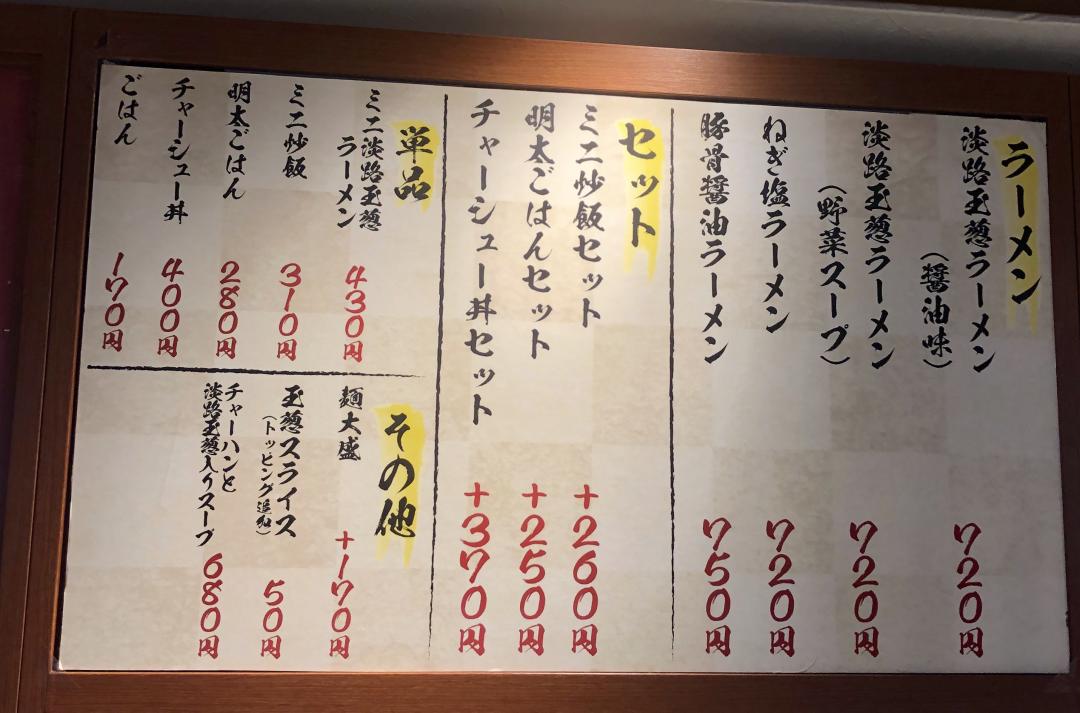 ラーメン
淡路玉葱ラーメン
(醤油味)
720円
淡路玉葱ラーメン
(野菜スープ)
720円
ねぎ塩ラーメン
720円
豚骨醤油ラーメン
750円
セット
ミニ炒飯セット
+260円
明太ごはんセット
+250円
チャーシュー丼セット
+370円
単品
ミニ淡路玉葱
ラーメン
430円
ミニ炒飯
310円
明太ごはん
280円
チャーシュー丼
400円
ごはん
170円
その他
麺大盛
+170円
玉葱スライス
(トッピング追加)
50円
チャーハンと
淡路玉葱入りスープ
680円